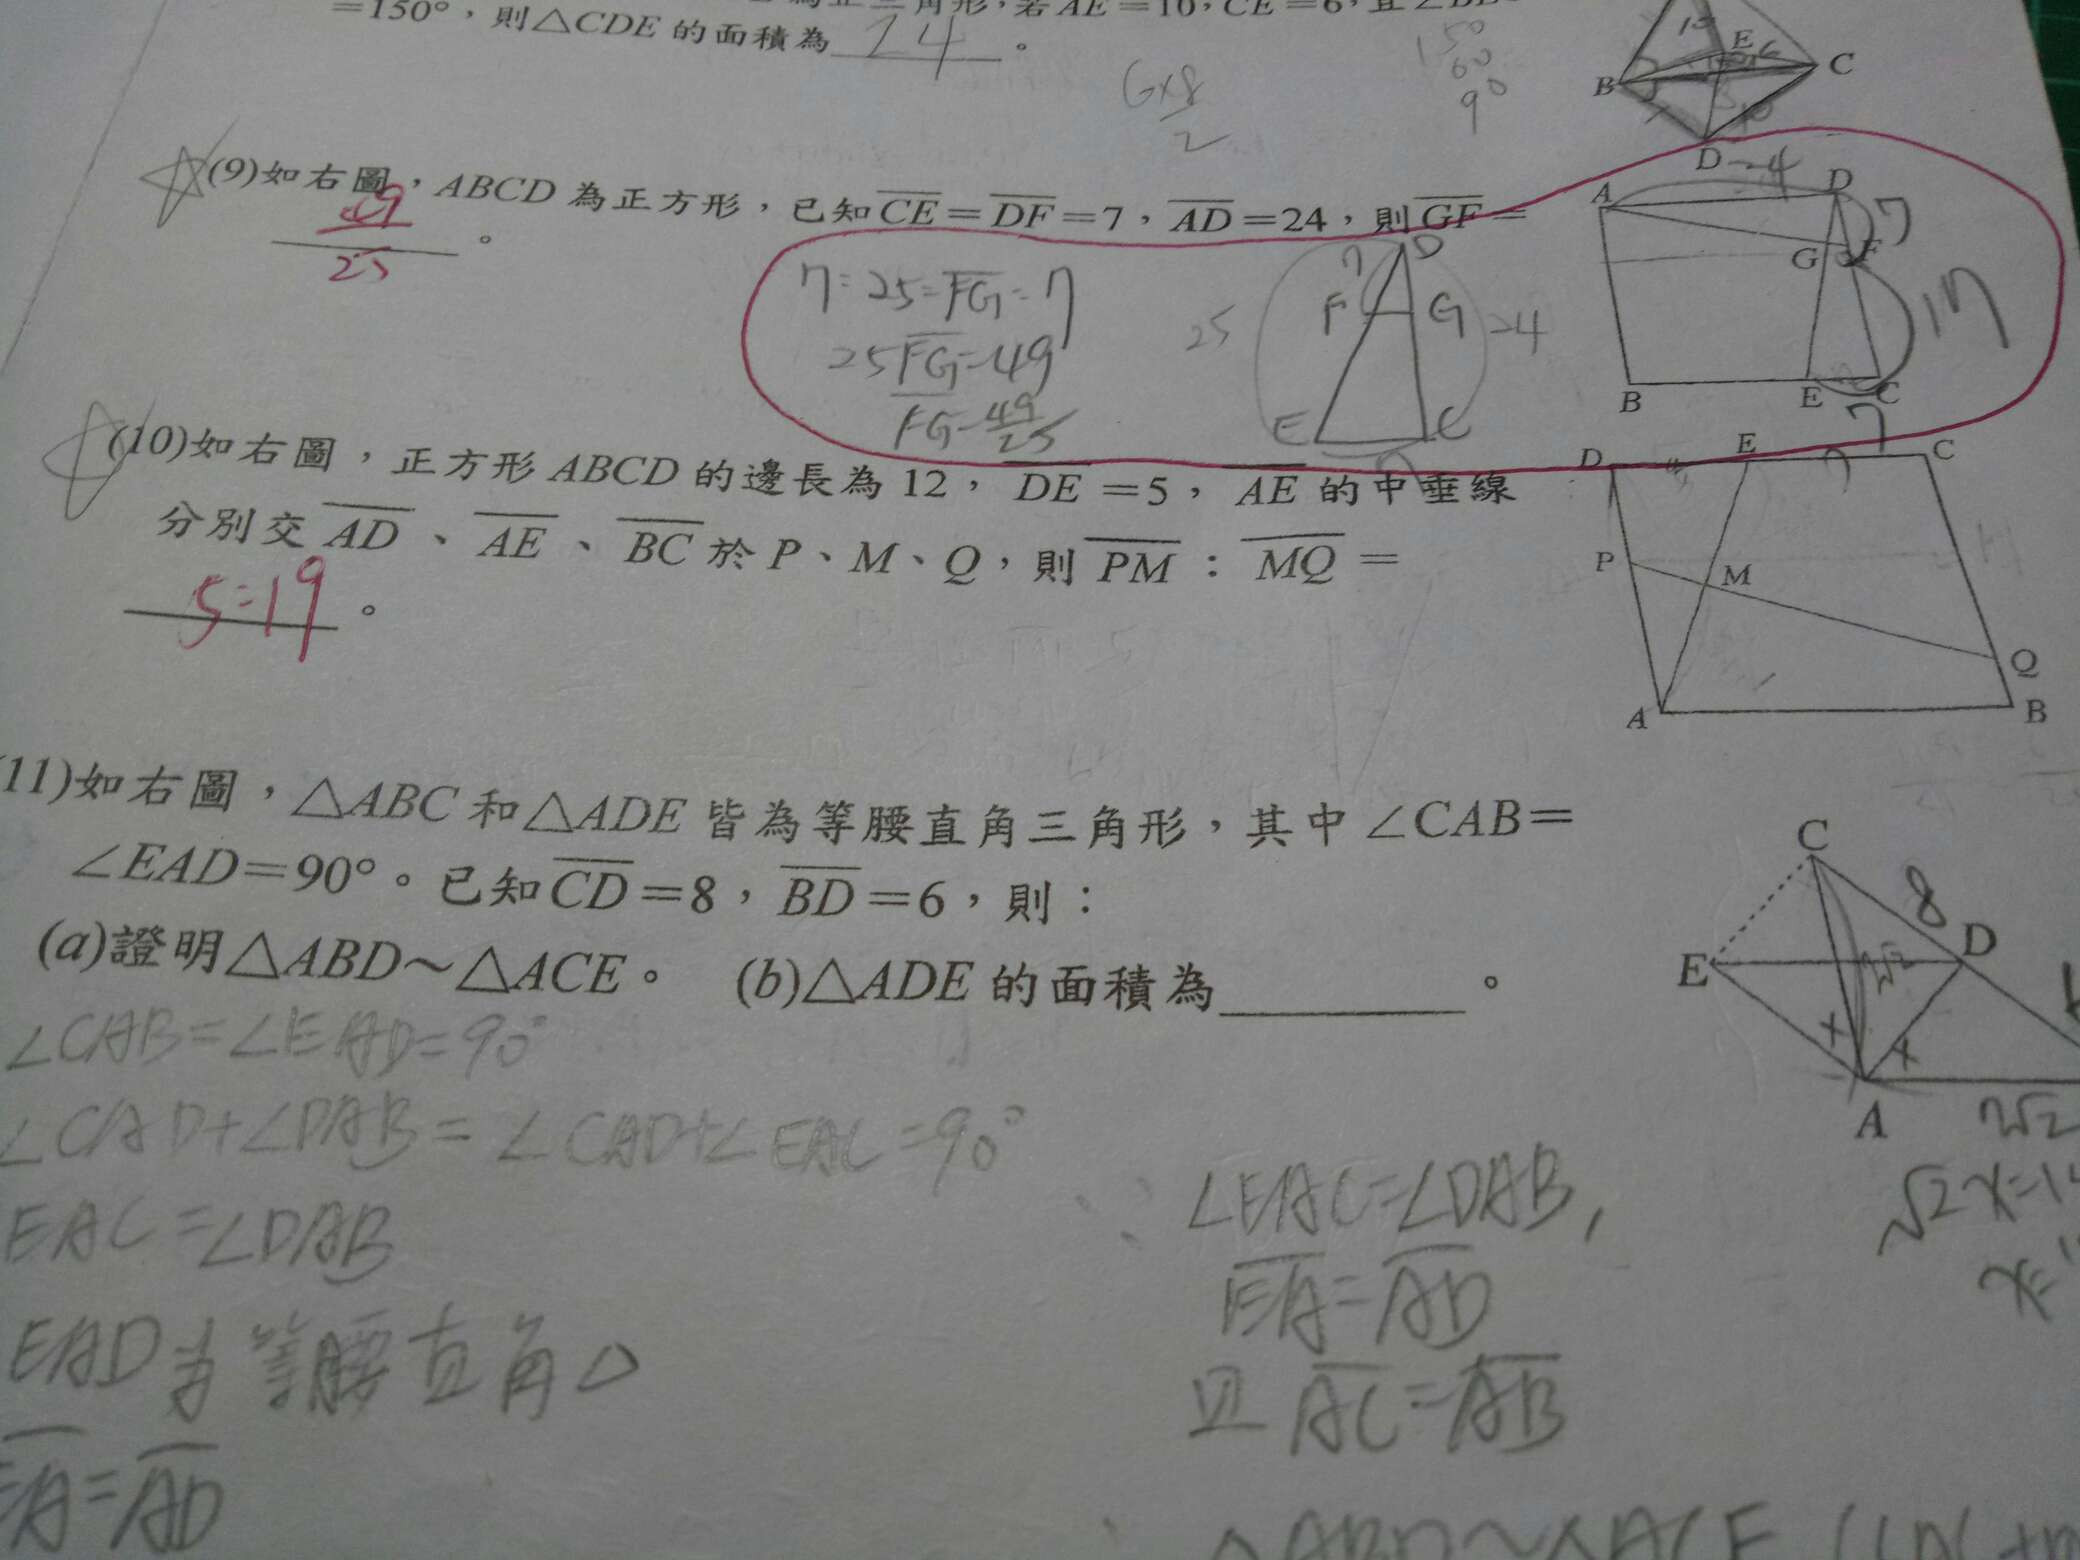 為正三角形，若AE=10，CE=6，且∠
=150°，則△CDE的面積為 24 。
6×8
2
150
60
90
15 E 6
B C
D
(9)如右圖，ABCD為正方形，已知CE=DF=7，AD=24，則GF=
49
25 。
7:25=FG:7
25FG=49
FG=49
25
7 D
F G
25 24
E C
7
24
A D
7
G F
17
B E C
7
(10)如右圖，正方形ABCD的邊長為12，DE=5，AE的中垂線
分別交AD、AE、BC於P、M、Q，則PM：MQ=
5:19 。
D E C
5 7
P M
Q
A B
(11)如右圖，△ABC和△ADE皆為等腰直角三角形，其中∠CAB=
∠EAD=90°。已知CD=8，BD=6，則：
(a)證明△ABD~△ACE。 (b)△ADE的面積為 。
C
8
E D
7√2
x x
A 7√2
∠CAB=∠EAD=90°
∠CAD+∠DAB=∠CAD+∠EAC=90°
EAC=∠DAB
EAD為等腰直角△
EA=AD
∵ ∠EAC=∠DAB,
EA=AD
且AC=AB
√2x=14
x=
△ABD~△ACE